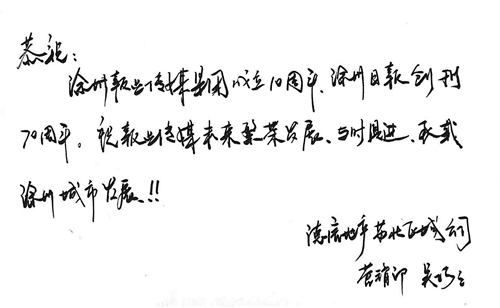 恭祝：
滁州报业传媒集团成立10周年、滁州日报创刊
70周年。祝报业传媒未来繁荣发展、与时俱进、承载
滁州城市发展!!
德信地产苏北区域公司
营销部 吴